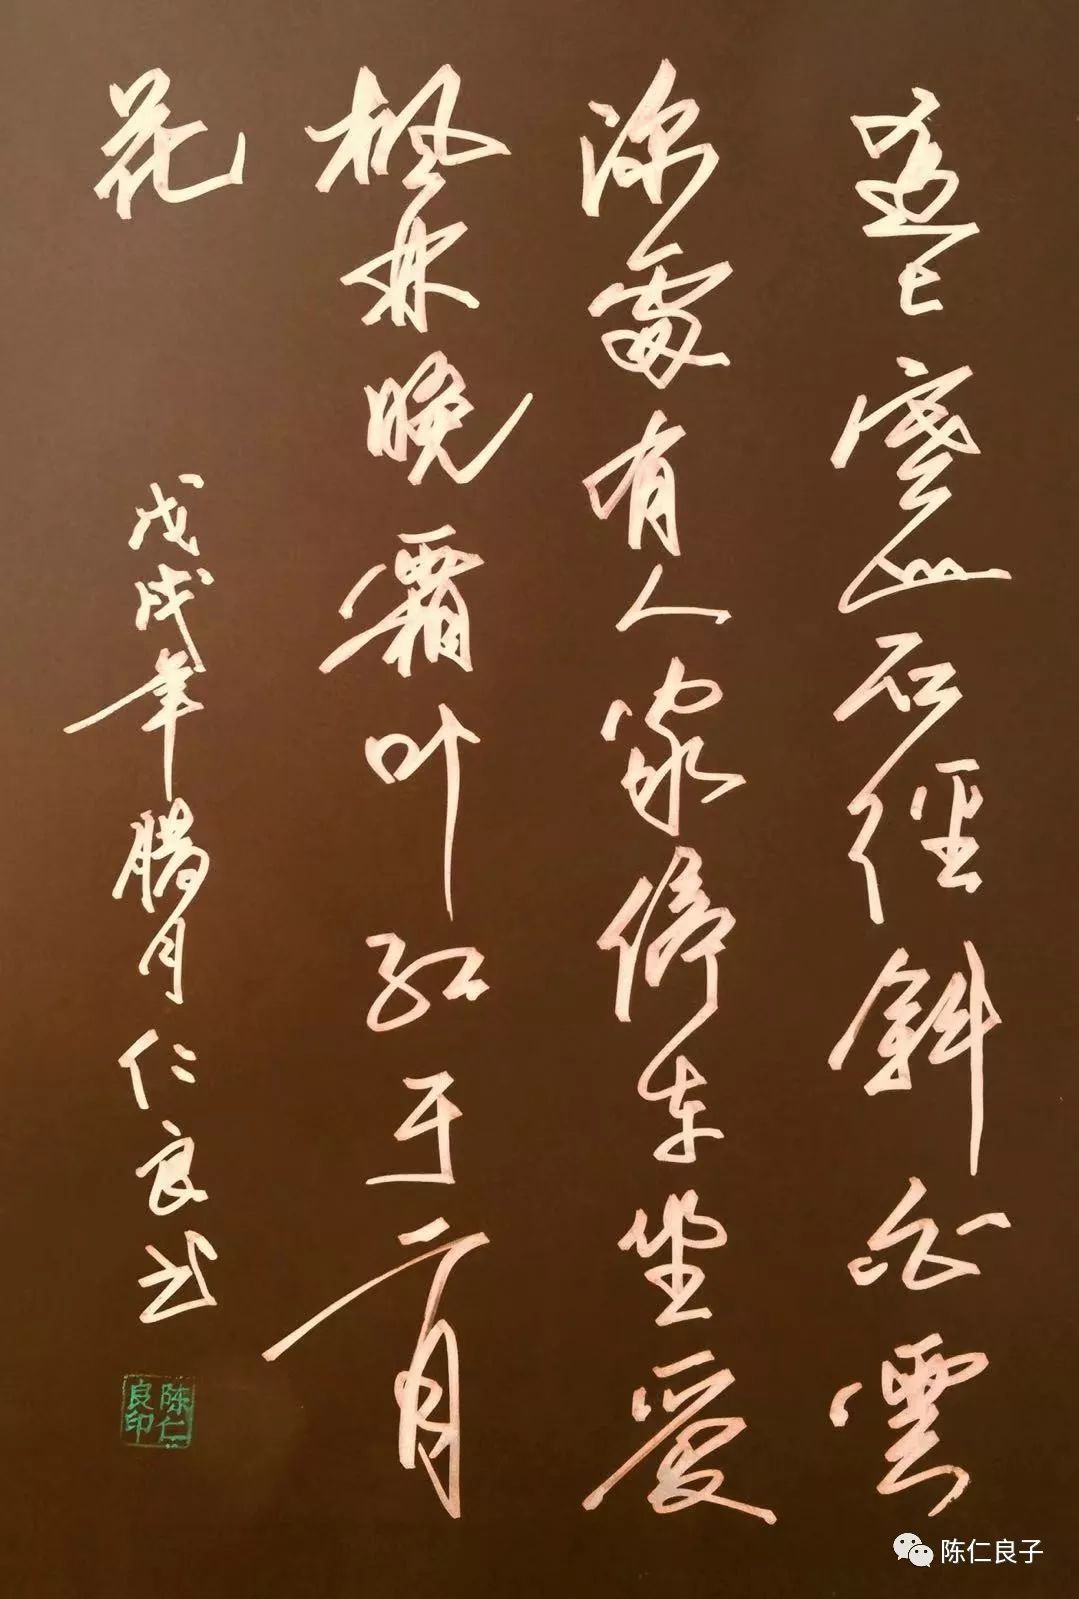 遠上寒山石徑斜白雲
深處有人家停车坐愛
枫林晚霜叶红于二月
花
戊戌年腊月仁良书
陈仁良印
陈仁良子